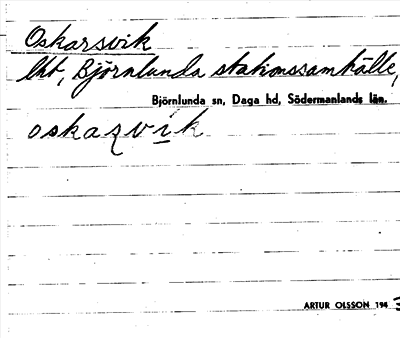 Oskarsvik
lht, Björnlunda stationssamhälle,
Björnlunda sn, Daga hd, Södermanlands län.
oskaʂvik
ARTUR OLSSON 194 3